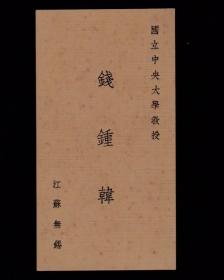 國立中央大學教授
錢鍾韓
江蘇無錫